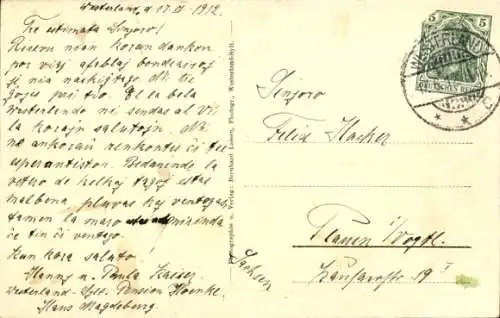 Westerland, d 17. IX. 1912.
Tre estimata Sinjoro!
Ricevu nian koran dankon
por viaj afeblaj bondeziroj
nia Ni tre
ĝojas pri tio. El la bela
Westerlando ni sendas al Vi
la korajn salutojn. Ni
ankoraŭ renkontis ĉi tie
esperantiston. Bedaŭrinde la
vetero de kelkaj tagoj estas
malbona, pluvas kaj ventegas,
tamen la maro mirinda
ĉe tiu ĉi vento.
Kun kora saluto!
Hanny u. Paula Kaiser
Westerland-Sylt. Pension Hoenke
Haus Magdeburg
Photographie u. Verlag: Bernhard Lassen, Photogr., Westerland-Sylt.
5 5
DEUTSCHES REICH
WESTERLAND
Sinjoro
Felix Hacker
Plauen i/Vogtl.
19 I
Sachsen